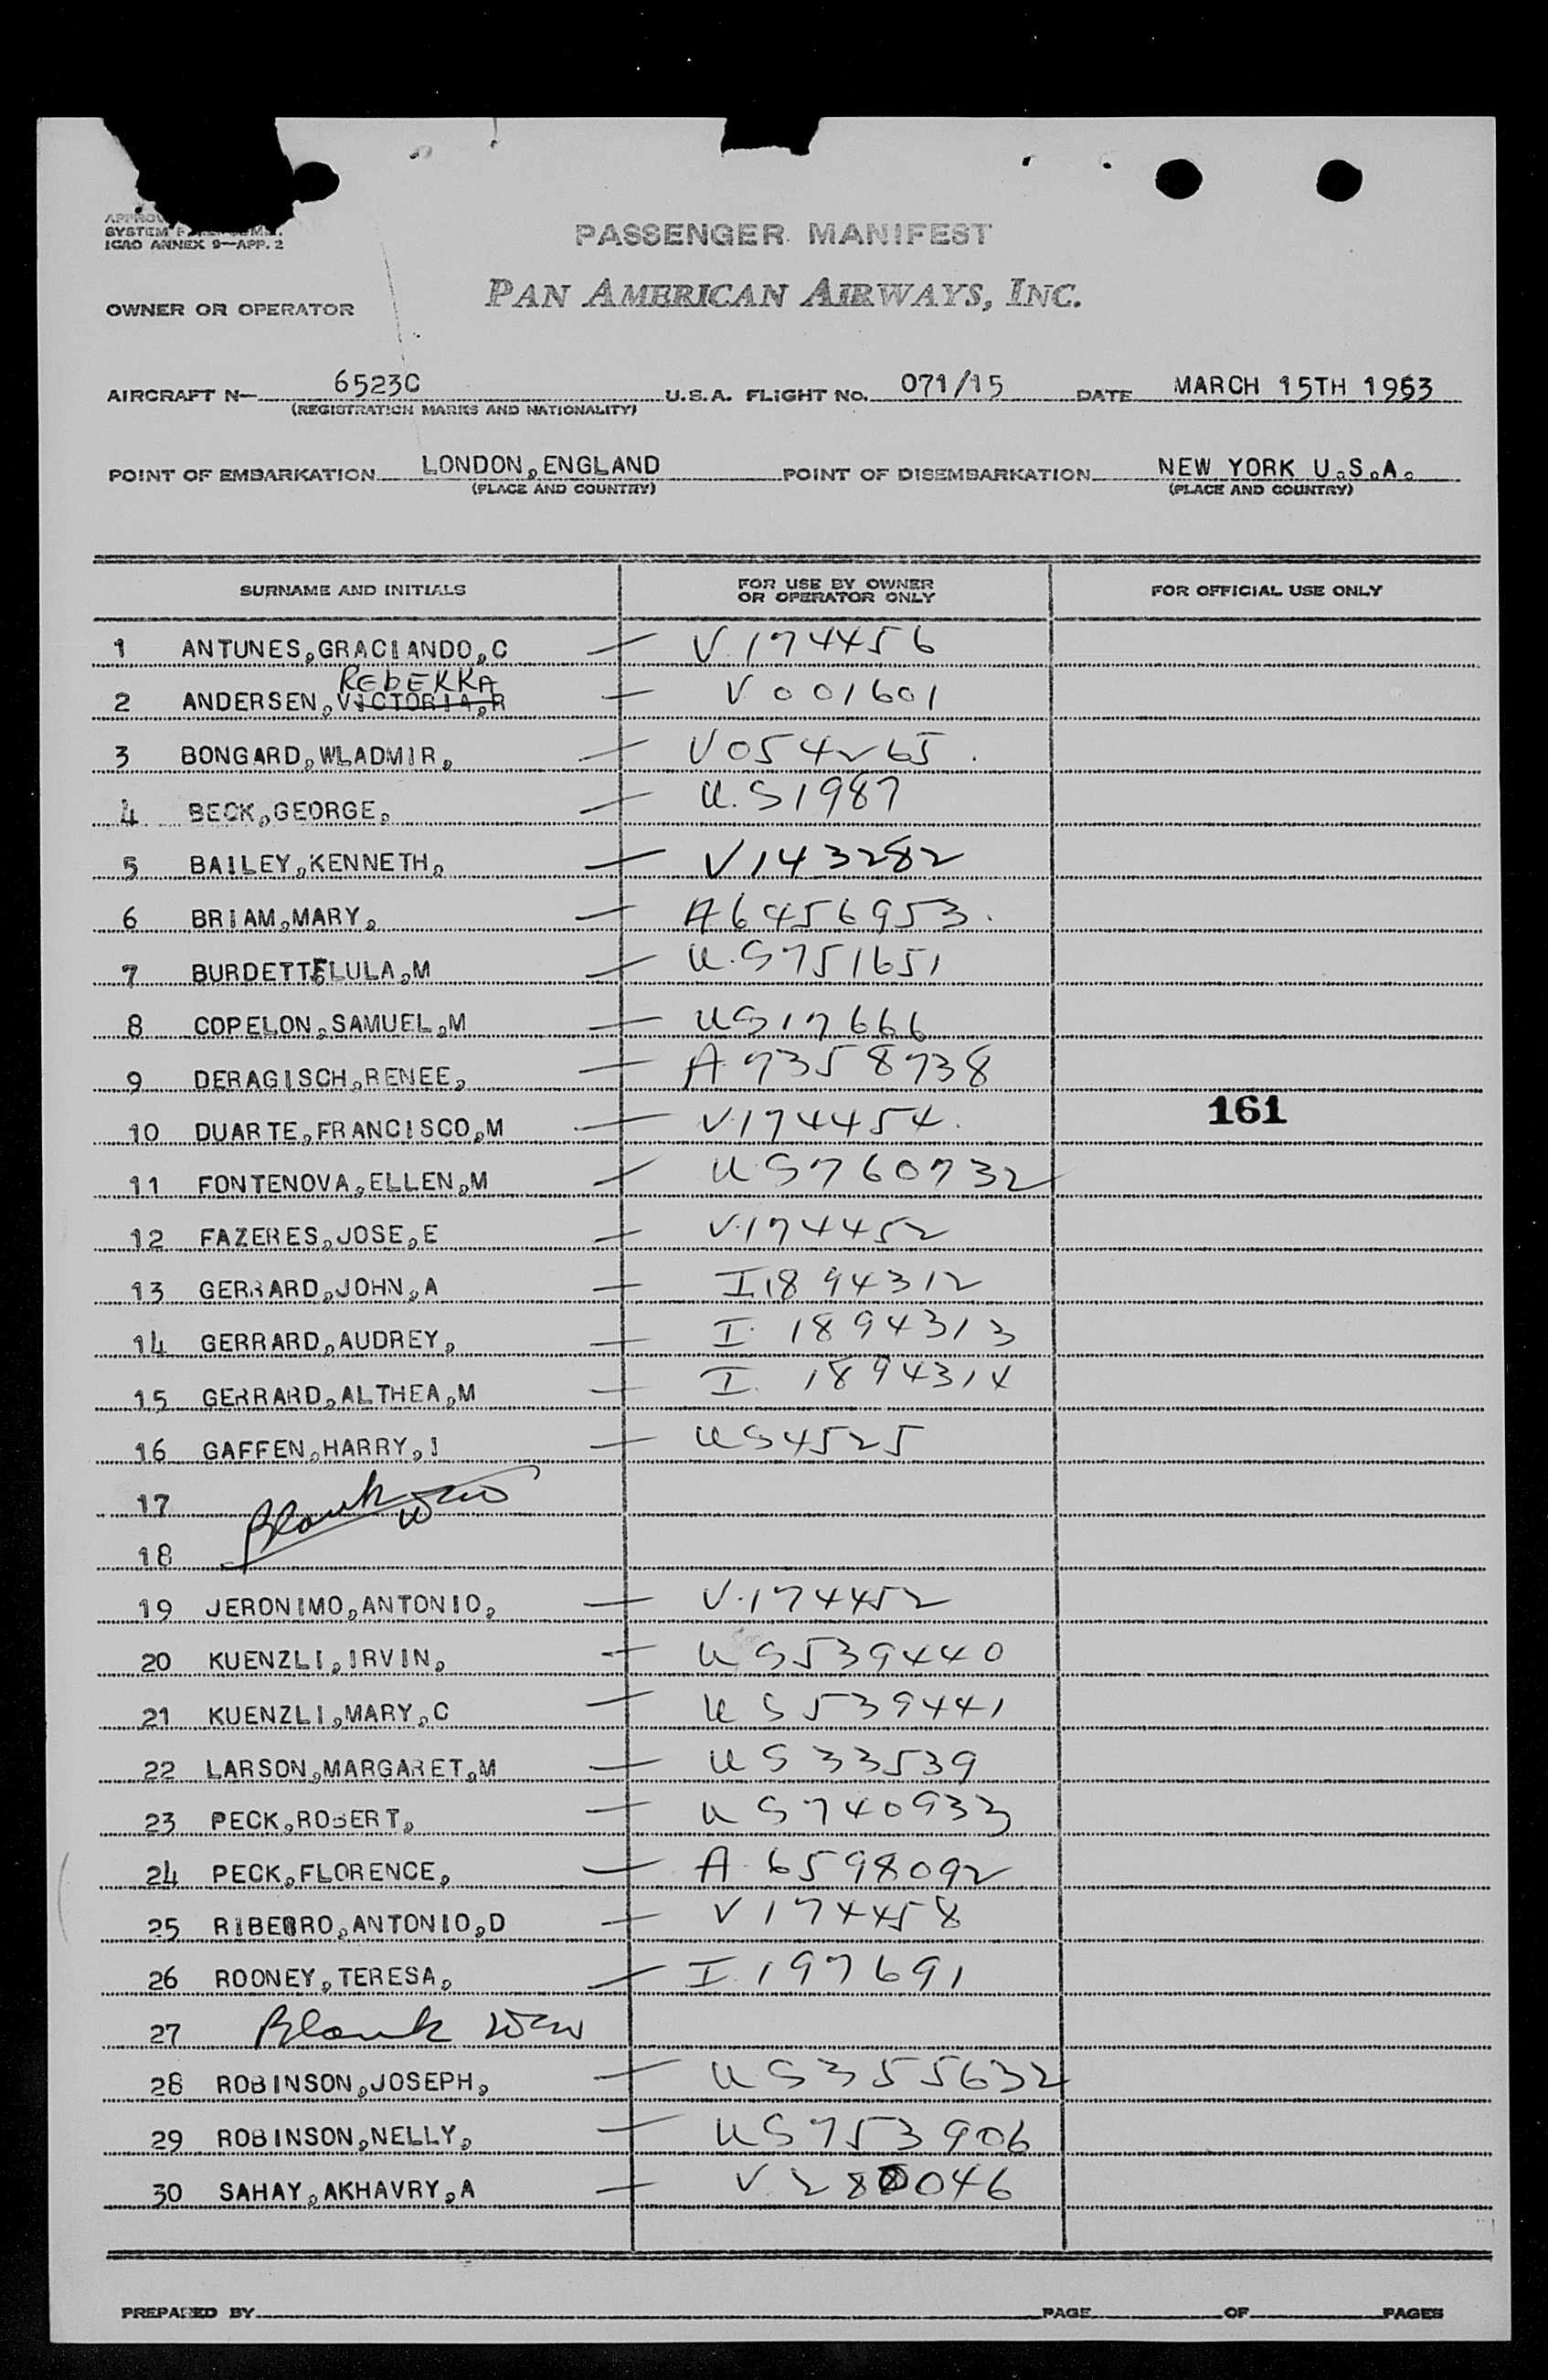 ICAO ANNEX 9—APP. 2
PASSENGER MANIFEST
PAN AMERICAN AIRWAYS, INC.
OWNER OR OPERATOR
AIRCRAFT N— 6523C U.S.A. FLIGHT NO. 071/15 DATE MARCH 15TH 1953
(REGISTRATION MARKS AND NATIONALITY)
POINT OF EMBARKATION LONDON, ENGLAND POINT OF DISEMBARKATION NEW YORK U.S.A.
(PLACE AND COUNTRY) (PLACE AND COUNTRY)
SURNAME AND INITIALS FOR USE BY OWNER OR OPERATOR ONLY FOR OFFICIAL USE ONLY
1 ANTUNES,GRACIANDO,C — V.174456
REBEKKA
2 ANDERSEN,VICTORIA,R — V001601
3 BONGARD,WLADMIR, — V054265.
4 BECK,GEORGE, — U.S1987
5 BAILEY,KENNETH, — V143282
6 BRIAM,MARY, — A6456953.
7 BURDETTE,LULA,M — U.S751651
8 COPELON,SAMUEL,M — US17666
9 DERAGISCH,RENEE, — A7358738
161
10 DUARTE,FRANCISCO,M — V.174454.
11 FONTENOVA,ELLEN,M — US760732
12 FAZERES,JOSE,E — V.174452
13 GERRARD,JOHN,A — I1894312
14 GERRARD,AUDREY, — I. 1894313
15 GERRARD,ALTHEA,M — I. 1894314
16 GAFFEN,HARRY,I — US4525
17 Blank
18
19 JERONIMO,ANTONIO, — V.174452
20 KUENZLI,IRVIN, — US539440
21 KUENZLI,MARY,C — US539441
22 LARSON,MARGARET,M — US33539
23 PECK,ROBERT, — US740933
24 PECK,FLORENCE, — A.6598092
25 RIBEIRO,ANTONIO,D — V174458
26 ROONEY,TERESA, — I.197691
27 Blank
28 ROBINSON,JOSEPH, — US355632
29 ROBINSON,NELLY, — US753906
30 SAHAY,AKHAVRY,A — V.280046
PREPARED BY PAGE OF PAGES